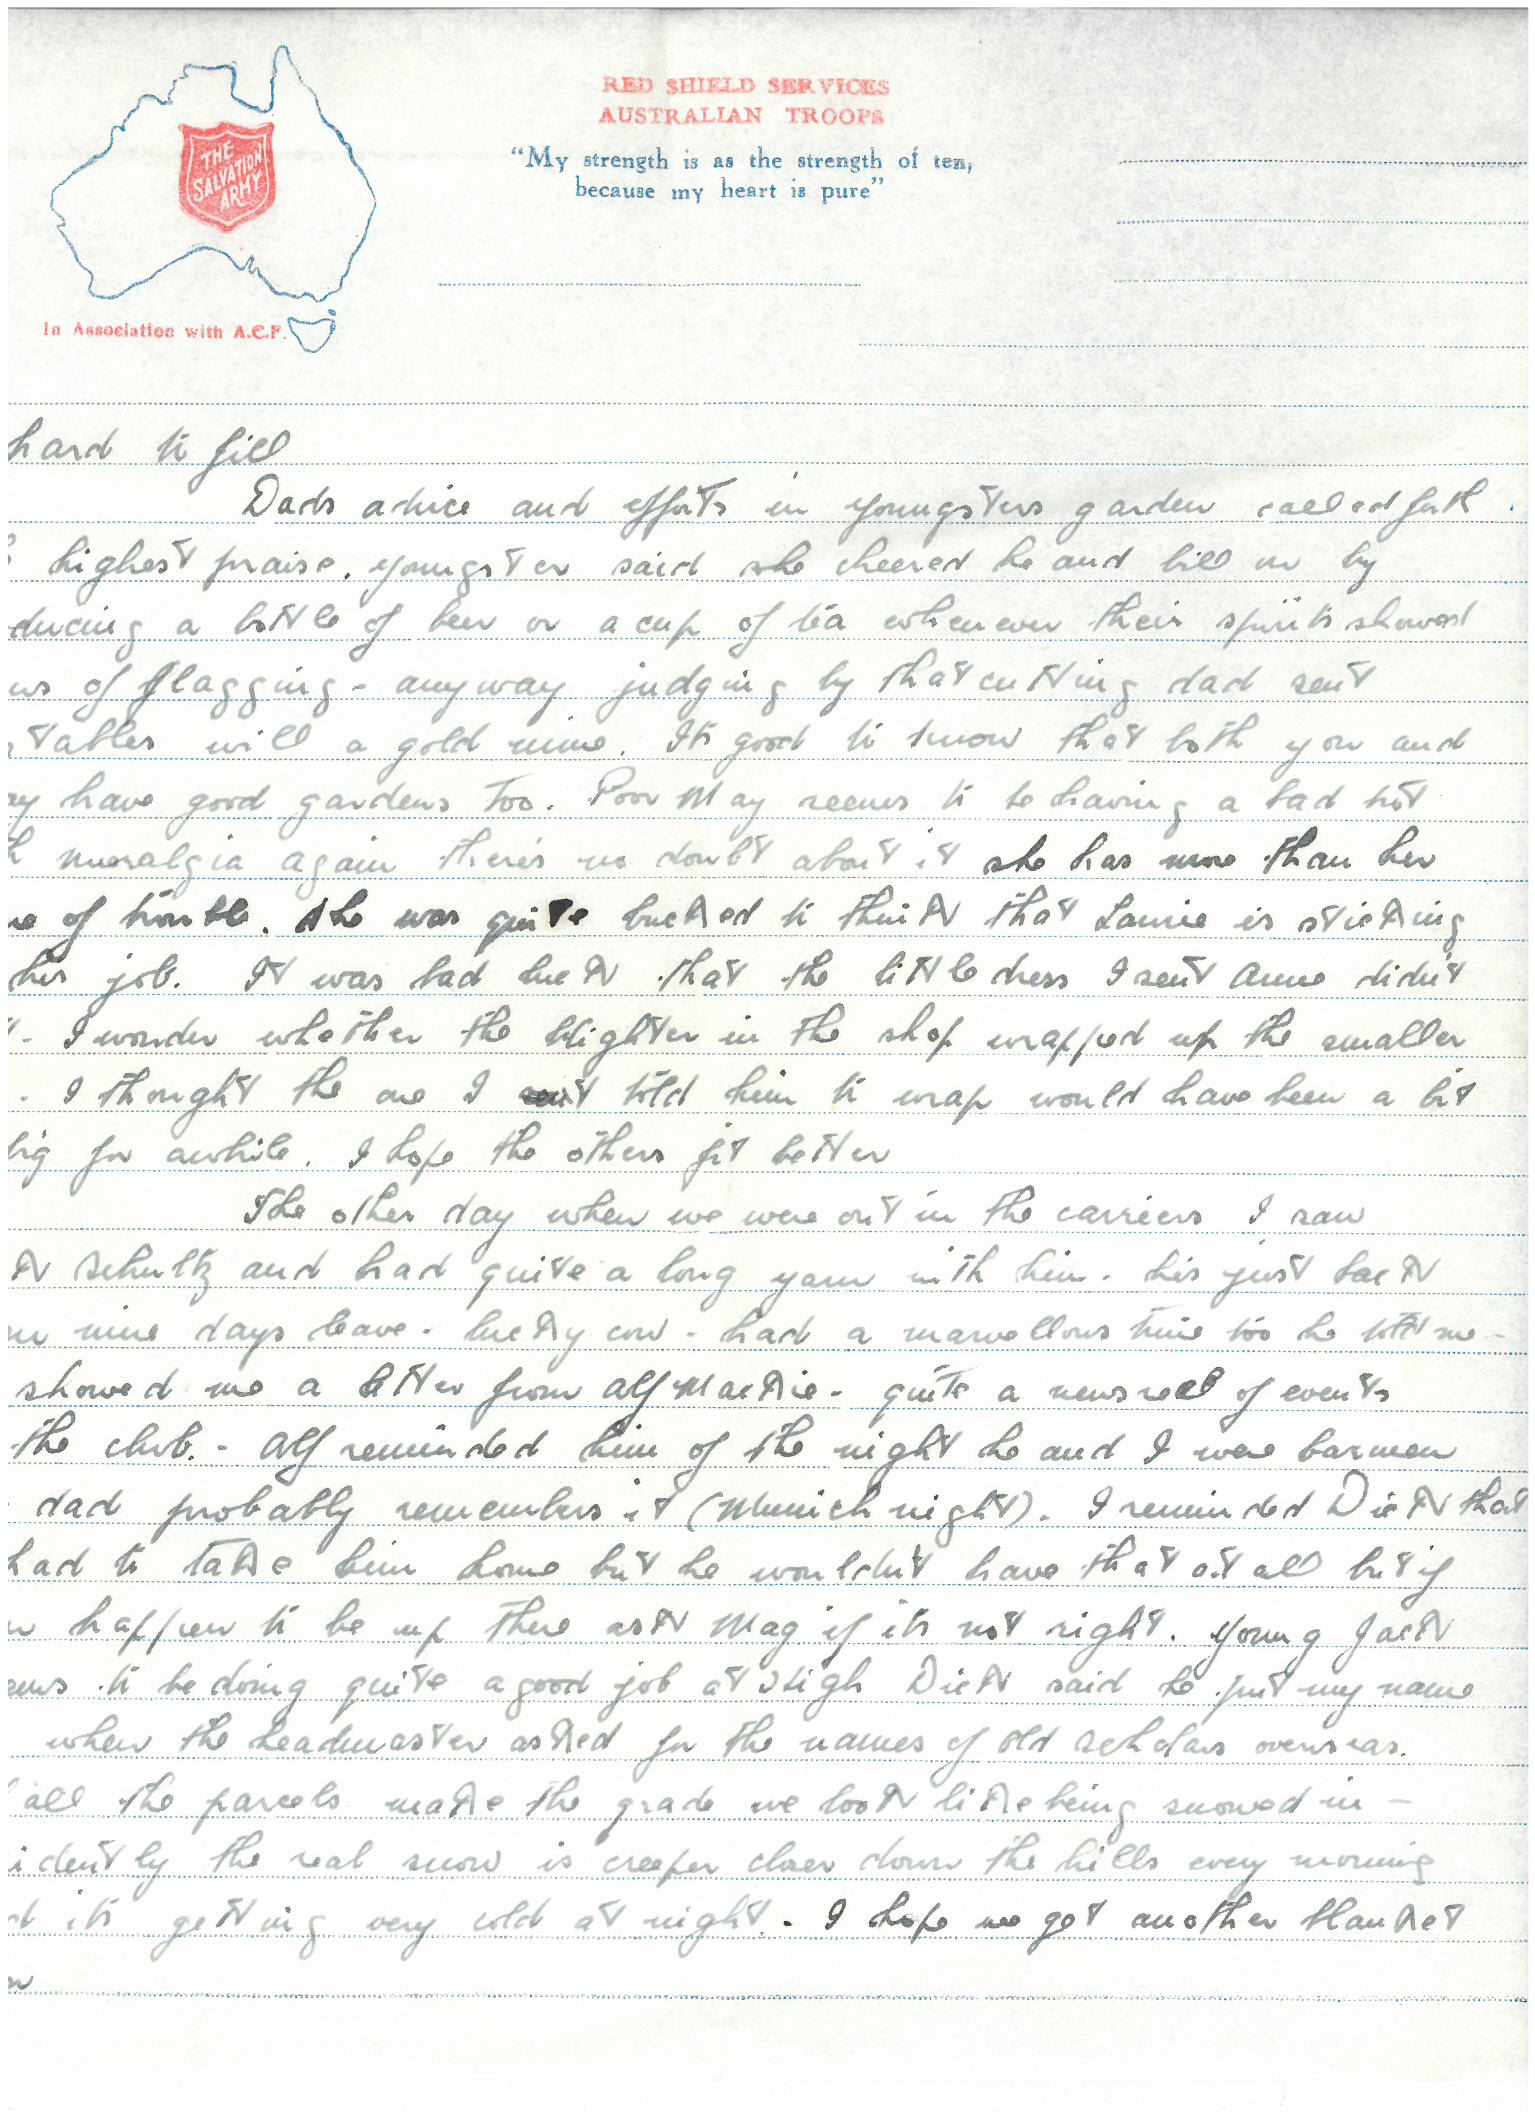 THE
SALVATION
ARMY
RED SHIELD SERVICES
AUSTRALIAN TROOPS
"My strength is as the strength of ten,
because my heart is pure"
In Association with A.C.F.
hard to fill
Dads advice and efforts in youngsters garden called forth
highest praise. youngster said she cheered he and bill on by
ducing a bottle of beer or a cup of tea whenever their spirits showed
ns of flagging - anyway judging by that cutting dad sent
tables will a gold mine. Its good to know that both you and
ay have good gardens too. Poor May seems to be having a bad trot
h nueralgia again theres no doubt about it she has more than her
re of trouble. She was quite bucked to think that Laurie is sticking
his job. It was bad luck that the little dress I sent Anne didn't
t. I wonder whether the blighter in the shop wrapped up the smaller
. I thought the one I sent told him to wrap would have been a bit
big for awhile. I hope the others fit better
The other day when we were out in the carriers I saw
k Schultz and had quite a long yarn with him. his just back
m nine days leave - lucky cow - had a marvellous time too he told me -
showed me a letter from Alf Mackie - quite a newsreel of events
the club. - Alf reminded him of the night he and I were barmen
dad probably remembers it (Munich night). I reminded Dick that
had to take him home but he wouldn't have that at all but if
u happen to be up there ask Mag if its not right. Young Jack
ems to be doing quite a good job at High Dick said he put my name
when the headmaster asked for the names of old scholars overseas.
all the parcels make the grade we look like being snowed in -
idently the real snow is creeper closer down the hills every morning
d its getting very cold at night. I hope we get another blanket
n